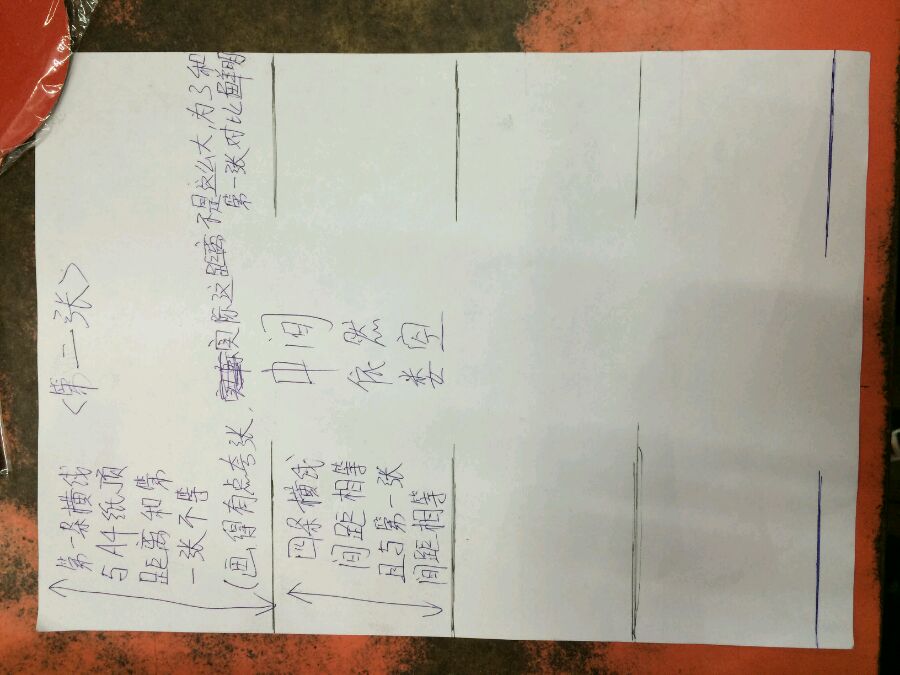 <第二张>
第一条横线
与A4纸顶
距离和第
一张不等
(画得有点夸张,实际这距离不是这么大,为了和
第一张对比鲜明
四条横线
间距相等
且与第一张
间距相等
中间
依然
娄空